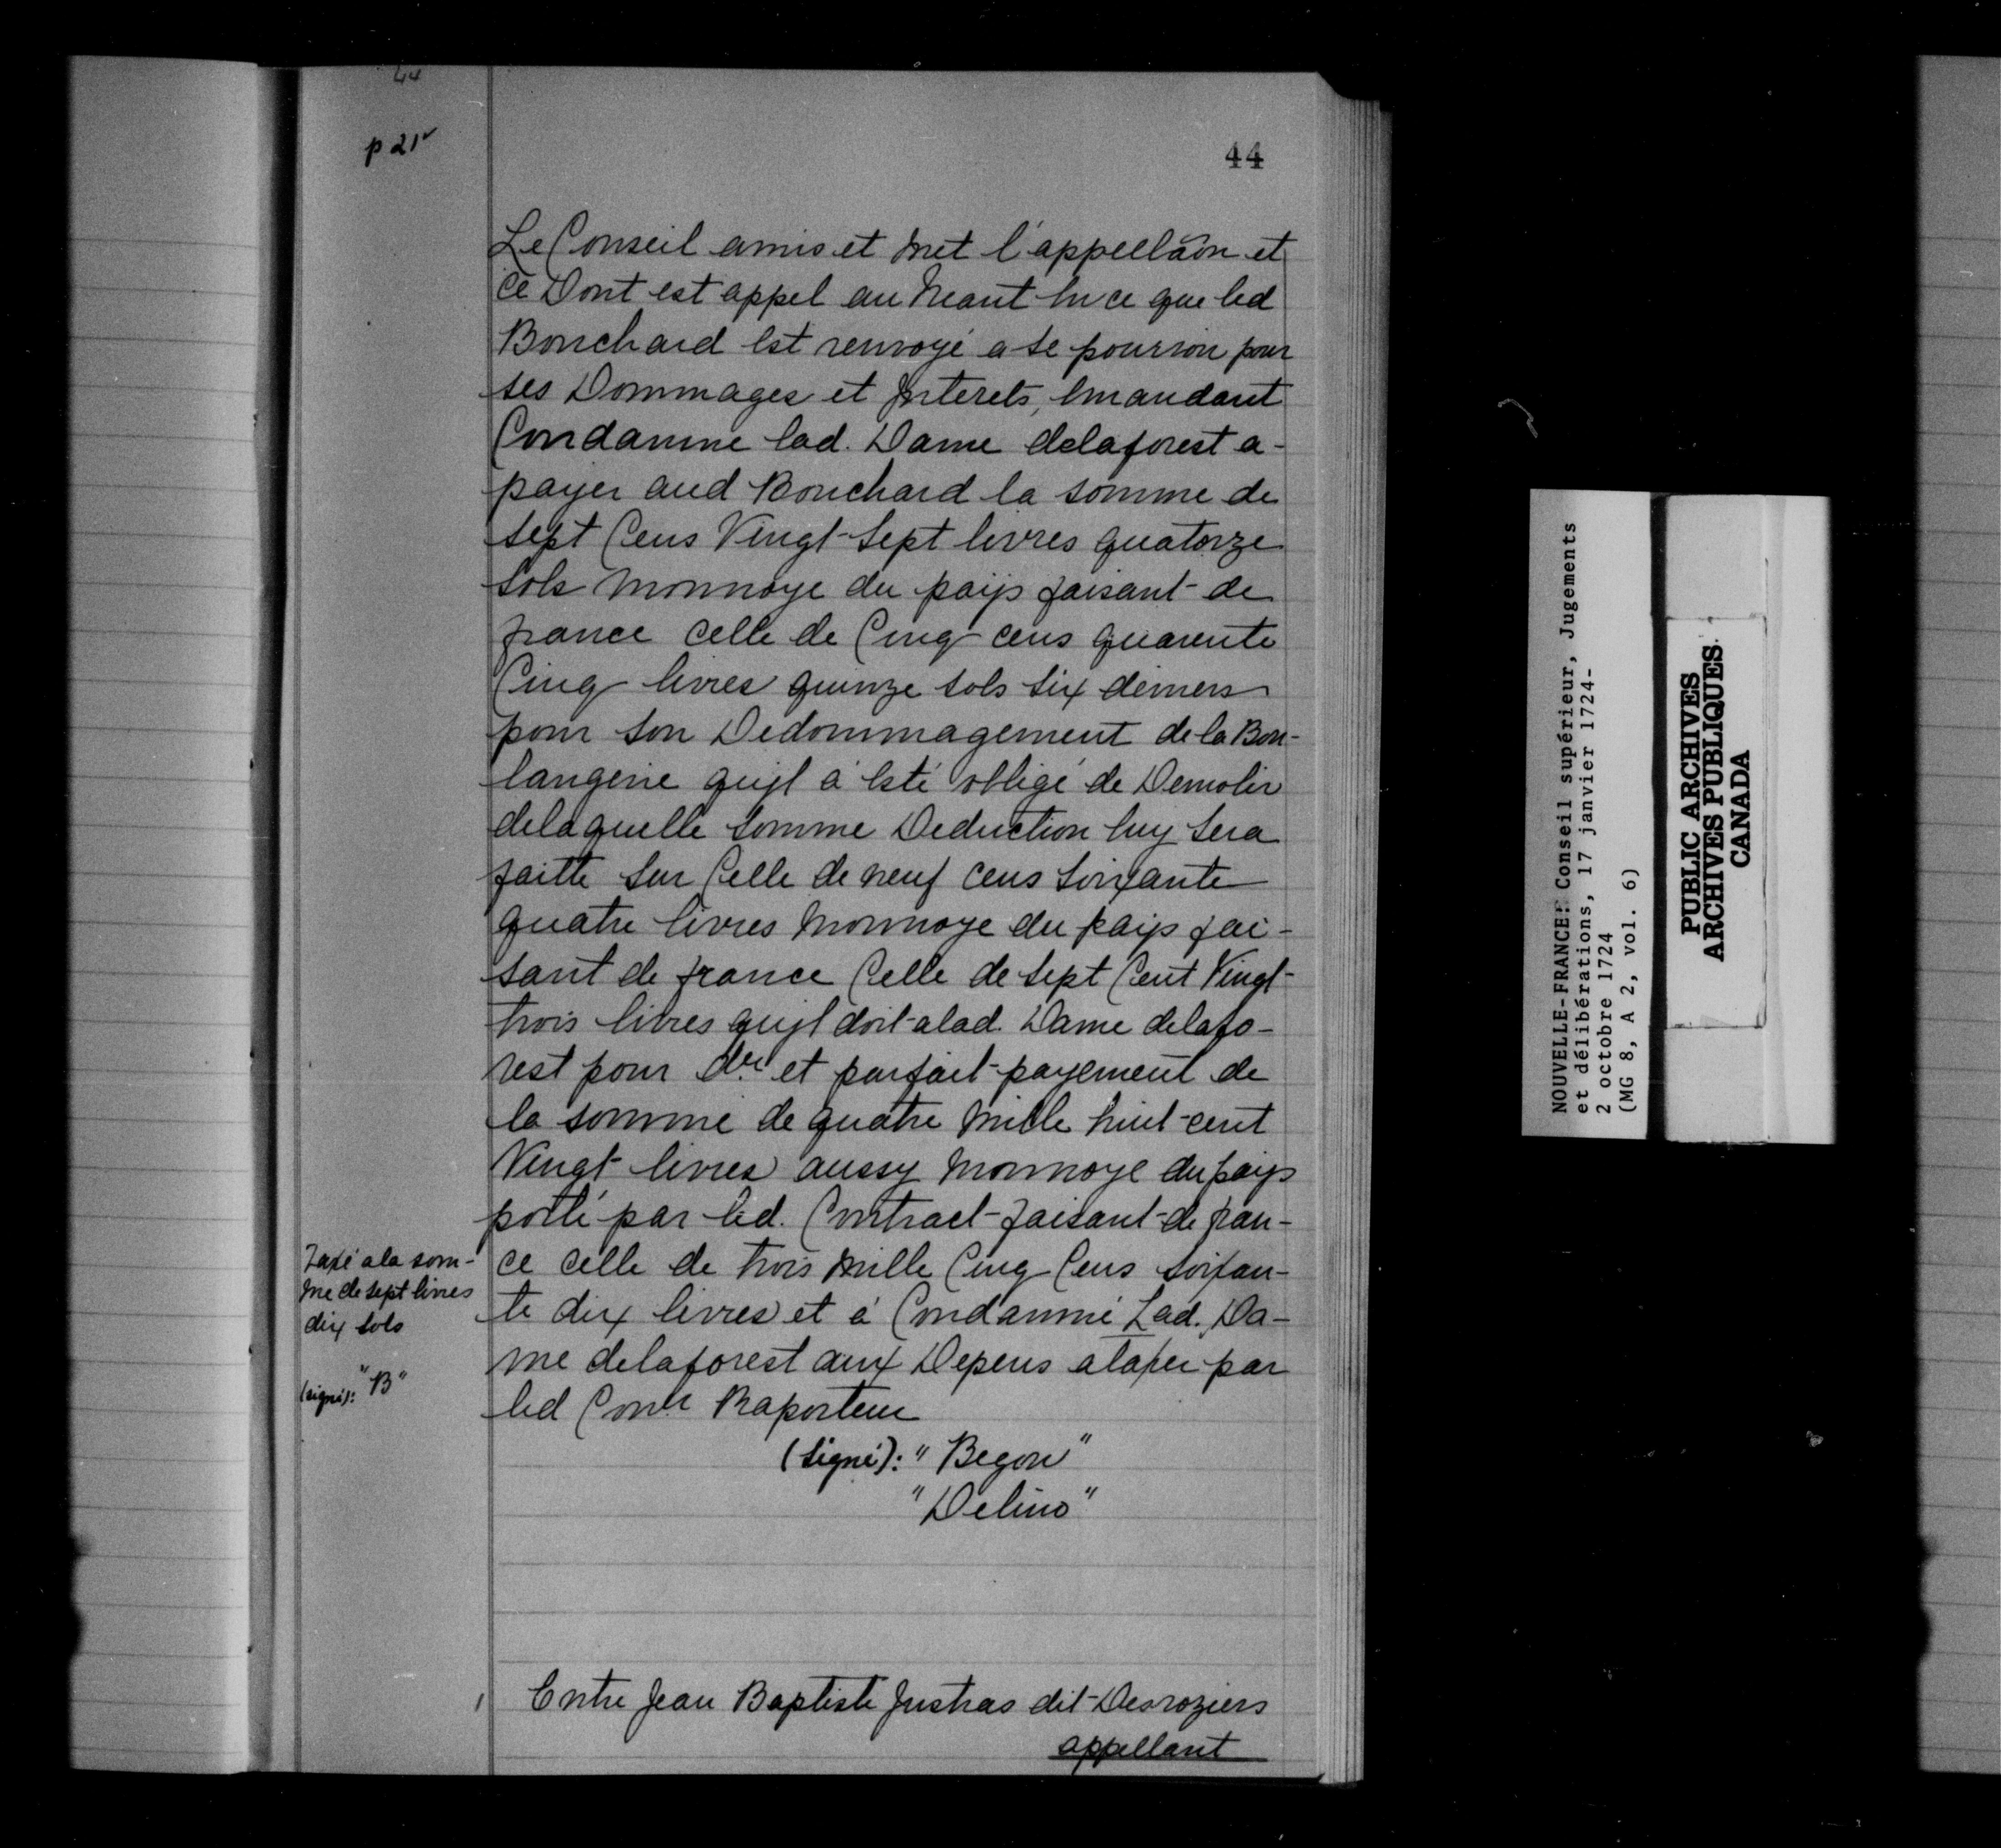 44
p 21v
44
Le Conseil amis et Met l'appellãon et
ce Dont est appel au Neant En ce que led
Bouchard Est renvoyé a se pourvoir pour
ses Dommages et Jnterets, Emandant
Condamne lad. Dame delaforest a-
payer aud Bouchard la somme de
Sept Cens Vingt-Sept livres quatorze
Sols Monnoye du païs faisant de
france celle de Cinq cens quarente
Cinq livres quinze sols six deniers
pour son Dedommagement de la Bou-
langerie qujl à Esté obligé de Demolir
delaquelle somme Deduction luy sera
faitte sur Celle de neuf cens soixante
quatre livres Monnoye du païs fai-
sant de france Celle de Sept Cent Vingt-
trois livres qujl doit alad. Dame delafo-
rest pour der et parfait payement de
la somme de quatre Mille huit cent
Vingt livres aussy Monnoye du païs
porté par led. Contract faisant de fran-
ce celle de trois Mille Cinq Cens soixan-
te dix livres et à Condamné Lad. Da-
me delaforest aux Depens ataxer par
led Conser Raporteur
(Signé): "Begon"
"Delino"
Taxé ala som-
me de sept livres
dix sols
(signé): "B"
Entre Jean Baptiste Justras dit Desroziers
appellant
NOUVELLE-FRANCE: Conseil supérieur, Jugements
et délibérations, 17 janvier 1724-
2 octobre 1724
(MG 8, A 2, vol. 6)
PUBLIC ARCHIVES
ARCHIVES PUBLIQUES
CANADA